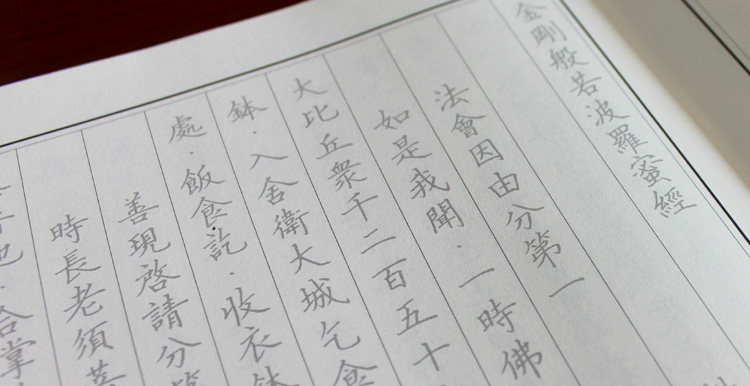 金剛般若波羅蜜經
法會因由分第一
如是我聞．一時佛
大比丘衆千二百五十
鉢．入舍衛大城乞食
處．飯食訖．收衣鉢
善現啓請分第
時長老須菩
地．合掌